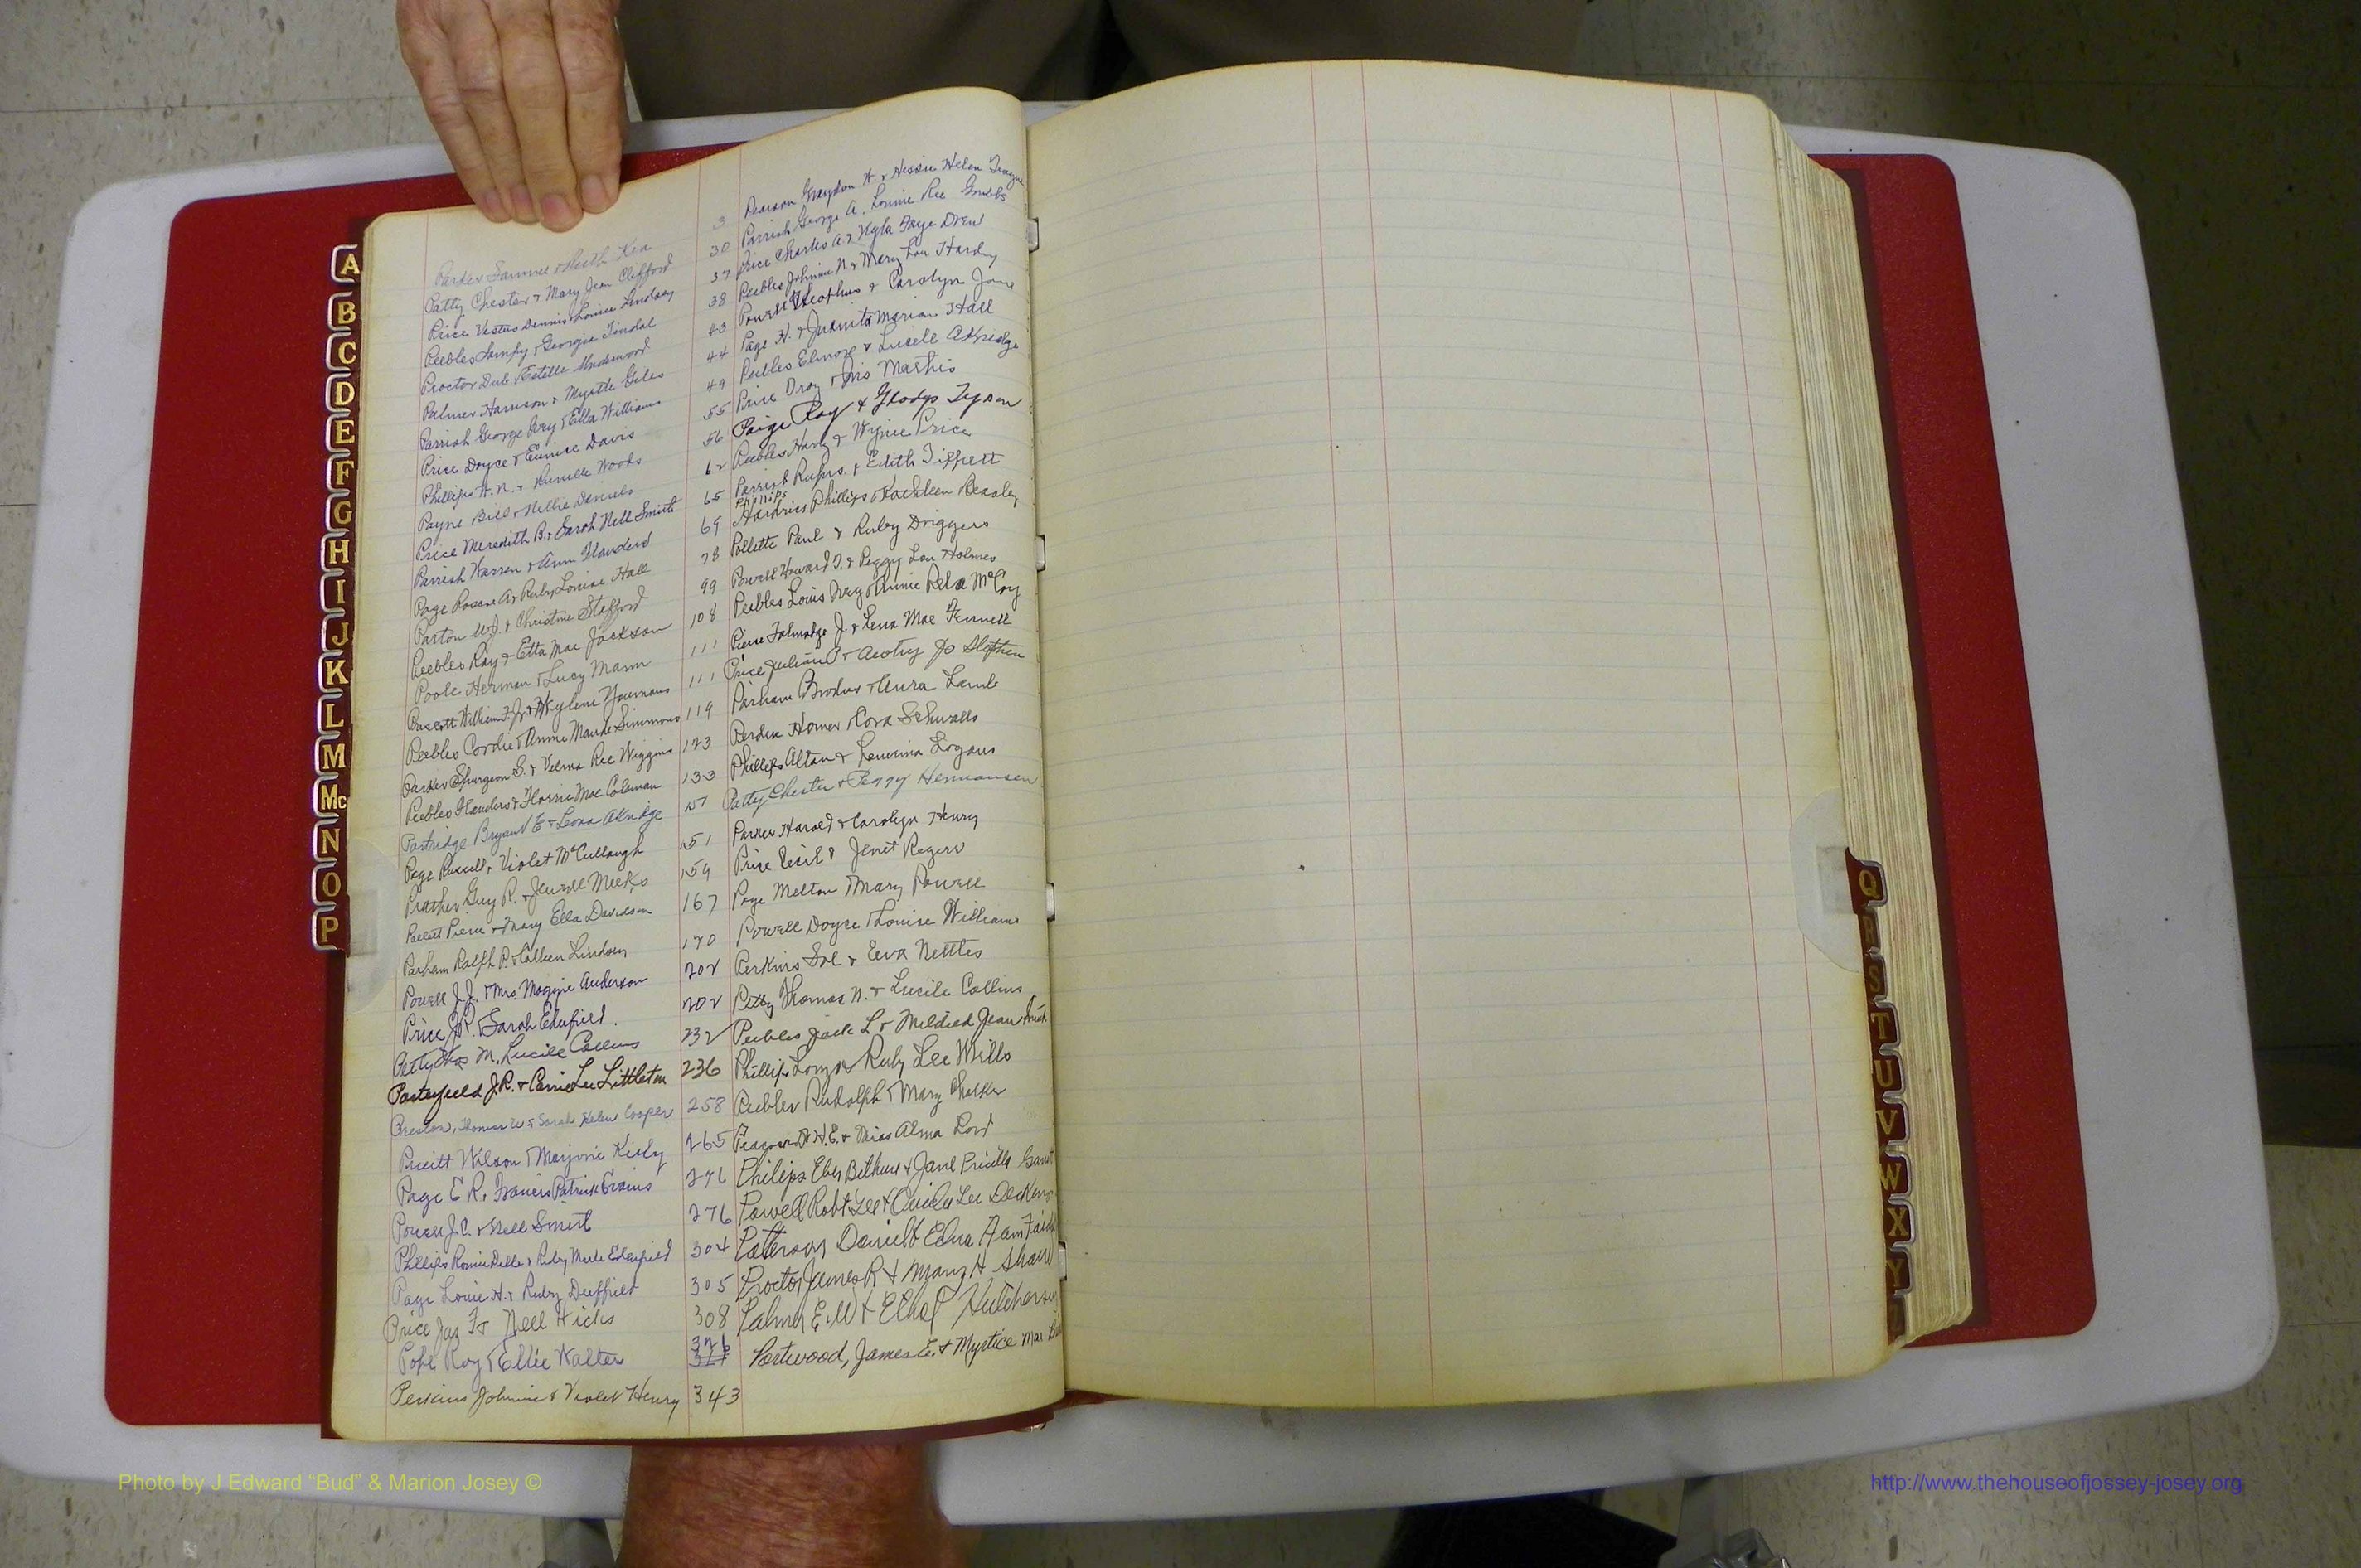 A
B
C
D
E
F
G
H
I
J
K
L
M
Mc
N
O
P
Parker & Ruth Kea 3
Patty Chester & Mary Jean Clifford 30
Price Vestus Dennis & Louise Lindsey 37
Peebles & Georgia Tindal 38
Proctor Dub & Estelle Underwood 43
Palmer Harrison & Myrtle Giles 44
Parrish George & Ella Williams 49
Price Doyce & Eunice Davis 55
Phillips H.N. & Woods 56
Payne Bill & Nellie Daniels 62
Price Meredith B. & Sarah Nell Smith 65
Parrish Warren & Ann 69
Page Roscoe A & Ruby Louise Hall 78
Parton W.J. & Christine Stafford 99
Peebles Ray & Etta Mae Jackson 108
Poole Herman & Lucy Mann 111
Prescott William F. Jr & Youmans 111
Peebles Cordie & Annie Maude Simmons 119
Parker Spurgeon S. & Velma Ree Wiggins 123
Peebles Flanders & Flossie Mae Coleman 133
Partridge Bryant E & Leona Akridge 151
Page Russell & Violet McCullough 151
Prather Guy R. & Jewell Meeks 159
Pierce & Mary Ella Davidson 167
Parham Ralph P. & Colleen Lindsey 170
Powell J.J. & Mrs. Maggie Anderson 202
Price J.R. & Sarah Edenfield. 202
Petty M. Lucile Collins 232
Porterfield J.R. & Carrie Lee Littleton 236
Preston, Thomas W & Sarah Helen Cooper 258
Pruitt Wilson & Marjorie Kirby 265
Page E R. & Francis Evans 276
Powell J.C. & Nell Smith 276
Phillips & Ruby Merle Edenfield 304
Page Louie H. & Ruby Duffield 305
Price Jas F & Nell Hicks 308
Pope Roy & Ellie Walter 326
Perkins Johnnie & Violet Henry 343
Pearson Graydon H. & Hessie Helen
Parrish George A. Lonnie Ree Grubbs
Price Charles A. & Faye Drew
Peebles Johnnie N. & Mary Lou Hardy
Powell Theophus & Carolyn Jane
Page H. & Juanita Marian Hall
Peebles Elmore & Lucile Akridge
Price Droy & Mrs Mathis
Paige Roy & Gladys Tyson
Peebles & Wynie Price
Parrish Rufus & Edith Tippett
Phillips Phillips & Kathleen Beasley
Pollette Paul & Ruby Driggers
Powell Howard T. & Peggy Lou Holmes
Peebles Louis & Annie Rela McCoy
Pierce Talmadge J. & Lena Mae Fennell
Price Julian & Jo Stephen
Parham Brodus & Aura Lamb
Perdue Homer & Cora Schwalls
Phillips Alton & Logans
Patty Chester & Peggy Hermansen
Parker Harold & Carolyn Henry
Price Cecil & Jenet Rogers
Page Melton & Mary Powell
Powell Doyce & Louise Williams
Perkins Sol & Eva Nettles
Petty Thomas N. & Lucile Collins
Peebles Jack L & Mildred Jean Smith
Phillips & Ruby Lee Mills
Peebles Rudolph & Mary
Peacock H.E. & Miss Alma Lord
Philips Eben Bethune & Jane
Powell Robt Lee & Lee
Paterson Daniel & Edna
Proctor James R & Mary H
Palmer E.W & Ethel
Portwood, James E. & Myrtice Mae
Q
R
S
T
U
V
W
X
Y
Photo by J Edward “Bud” & Marion Josey ©
http://www.thehouseofjossey-josey.org